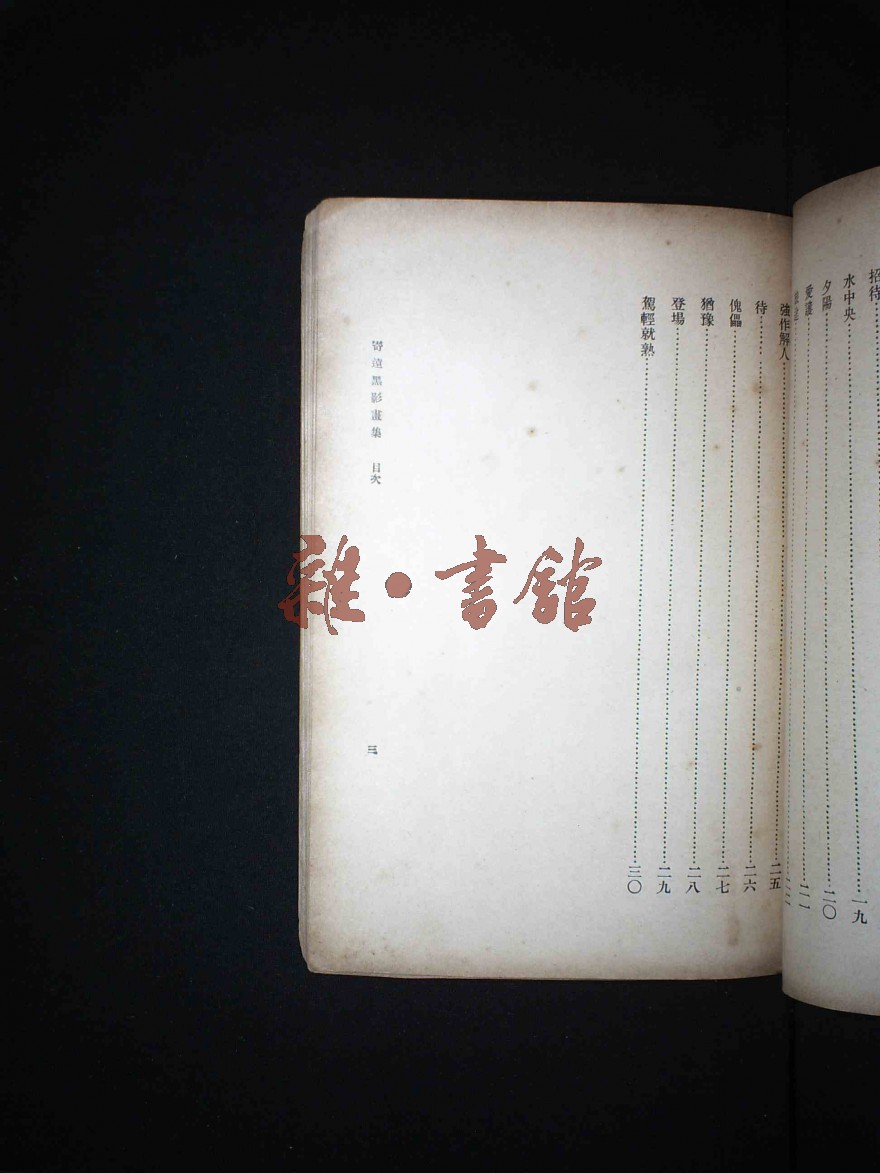 招待
水中央……一九
夕陽……二〇
愛護……二一
強作解人……二五
待……二六
傀儡……二七
猶豫……二八
登場……二九
駕輕就熟……三〇
寄遠黑影畫集 目次
三
雜·書館